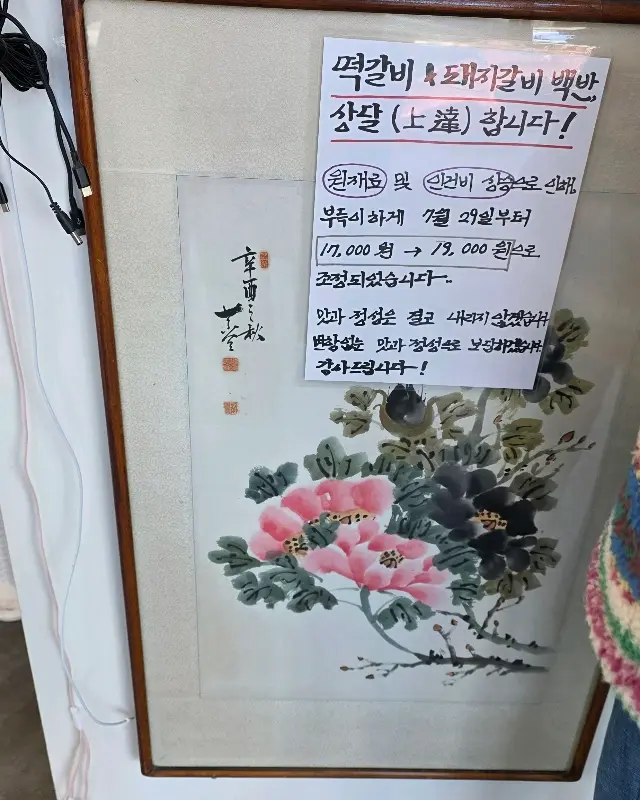 떡갈비 & 돼지갈비 백반,
상달 (上達) 합니다!
원재료 및 인건비 상승으로 인해
부득이하게 7월 29일부터
17,000원 → 19,000원으로
조정되었습니다..
맛과 정성은 결코 내리지 않겠습니다
변함없는 맛과 정성으로 보답하겠습니다
감사드립니다!
辛酉之秋